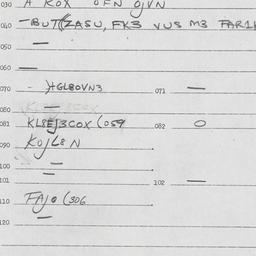 030 A KOX OFN OJVN
040 -BUT(ZASU, FK3 VUS M3 FAR1H
050 —
060 —
070 - HGLBOVN3 071 —
080 —
081 KL8EJ3COX (059 082 O
090 KOJL8N
100 —
101 — 102 —
110 FAJO (306
120 —